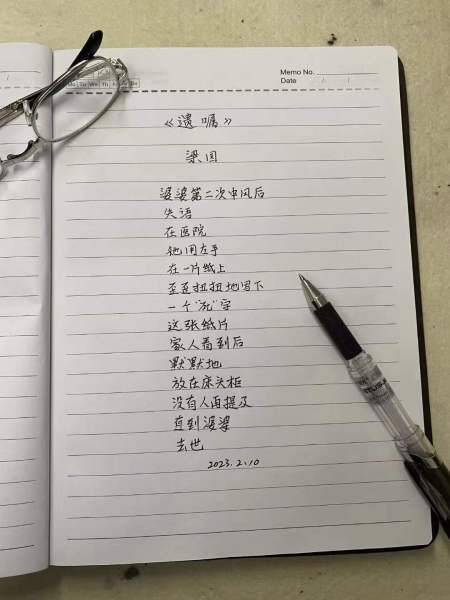 Memo No.
Date
Mo Tu We Th Fr Sa Su
《遗嘱》
梁园
婆婆第二次中风后
失语
在医院
她用左手
在一片纸上
歪歪扭扭地写下
一个“死”字
这张纸片
家人看到后
默默地
放在床头柜
没有人再提及
直到婆婆
去世
2023.2.10